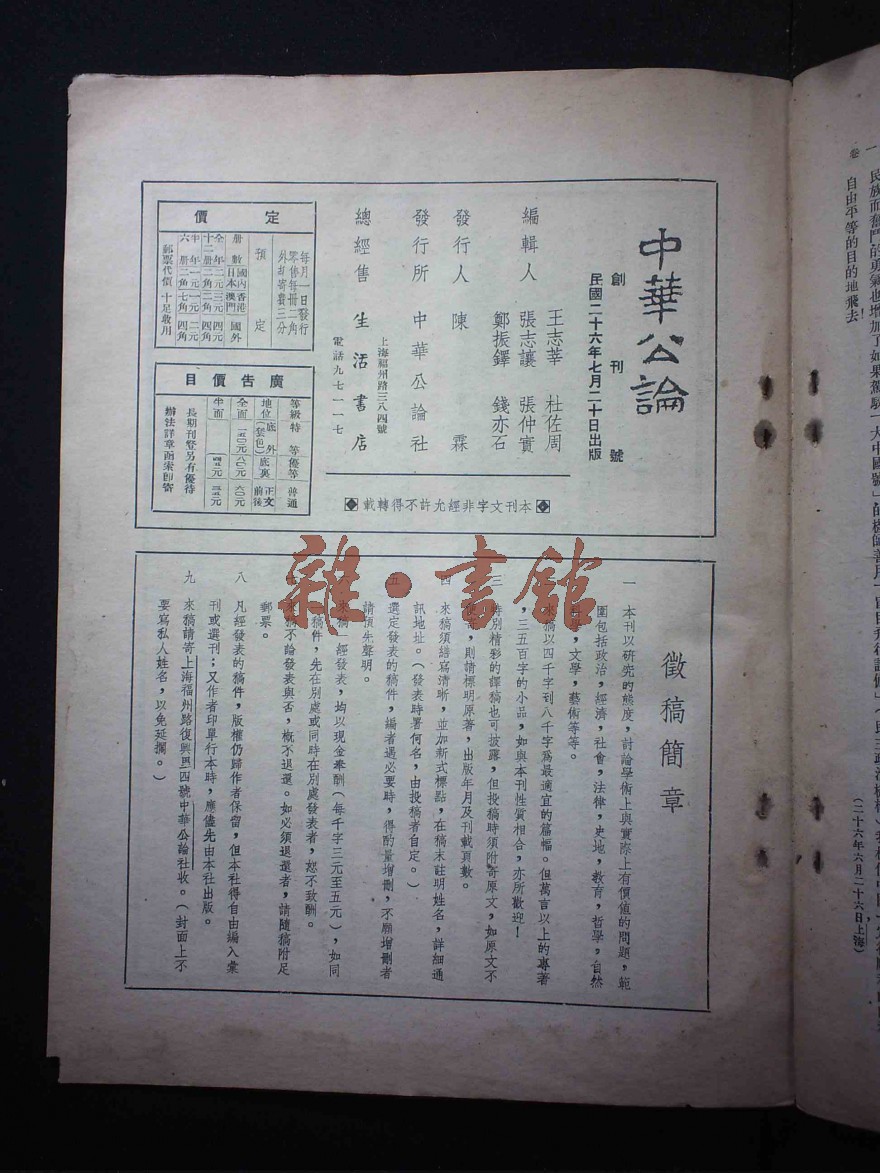 中華公論
創刊號
民國二十六年七月二十日出版
編輯人
王志莘 杜佐周
張志讓 張仲實
鄭振鐸 錢亦石
發行人 陳霖
發行所 中華公論社
總經售 生活書店
上海福州路三八四號
電話九七一一七
本刊文字非經允許不得轉載
定價
每月一日發行
零售每冊二角
外加寄費三分
預定
冊數 國內日本 香港澳門 國外
全年十二冊 二元二角 三元二角 四元四角
半年六冊 一元二角 二元四角
郵票代價十足收用
廣告價目
等級 特等 優等 普通
地位 底外(套色) 底裏 正文前後
全面 一五〇元 八〇元 六〇元
半面 四五元 三五元
長期刊登另有優待
辦法詳章函索即寄
徵稿簡章
一 本刊以研究的態度,討論學術上與實際上有價值的問題,範
圍包括政治,經濟,社會,法律,史地,教育,哲學,自然
科學,文學,藝術等等。
來稿以四千字到八千字爲最適宜的篇幅。但萬言以上的專著
,三五百字的小品,如與本刊性質相合,亦所歡迎!
三 特別精彩的譯稿也可披露,但投稿時須附寄原文,如原文不
便寄,則請標明原著,出版年月及刊載頁數。
四 來稿須繕寫清晰,並加新式標點,在稿末註明姓名,詳細通
訊地址。(發表時署何名,由投稿者自定。)
五 選定發表的稿件,編者遇必要時,得酌量增刪,不願增刪者
請預先聲明。
六 來稿一經發表,均以現金奉酬(每千字三元至五元),如同
稿件,先在別處或同時在別處發表者,恕不致酬。
來稿不論發表與否,概不退還。如必須退還者,請隨稿附足
郵票。
八 凡經發表的稿件,版權仍歸作者保留,但本社得自由編入彙
刊或選刊;又作者印單行本時,應儘先由本社出版。
九 來稿請寄上海福州路復興里四號中華公論社收。(封面上不
要寫私人姓名,以免延擱。)
雜·書館
民族而奮鬥的勇氣也增加了如果駕駛「大中國號」的機師善用
自由平等的目的地飛去!
(二十六年六月二十六日上海)